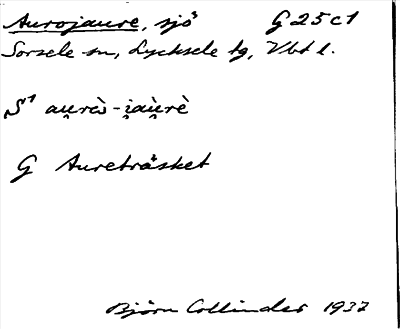 Aurojaure, sjö G25c1
Sorsele sn, Lycksele tg, Vbt l.
S¹ au̯rè̀-i̯àu̯rè
G Aureträsket
Björn Collinder 1937